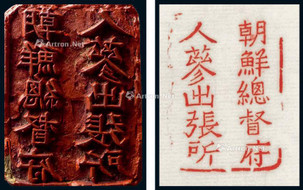 朝鮮總督府
人蔘出張所
朝鮮總督府
人蔘出張所